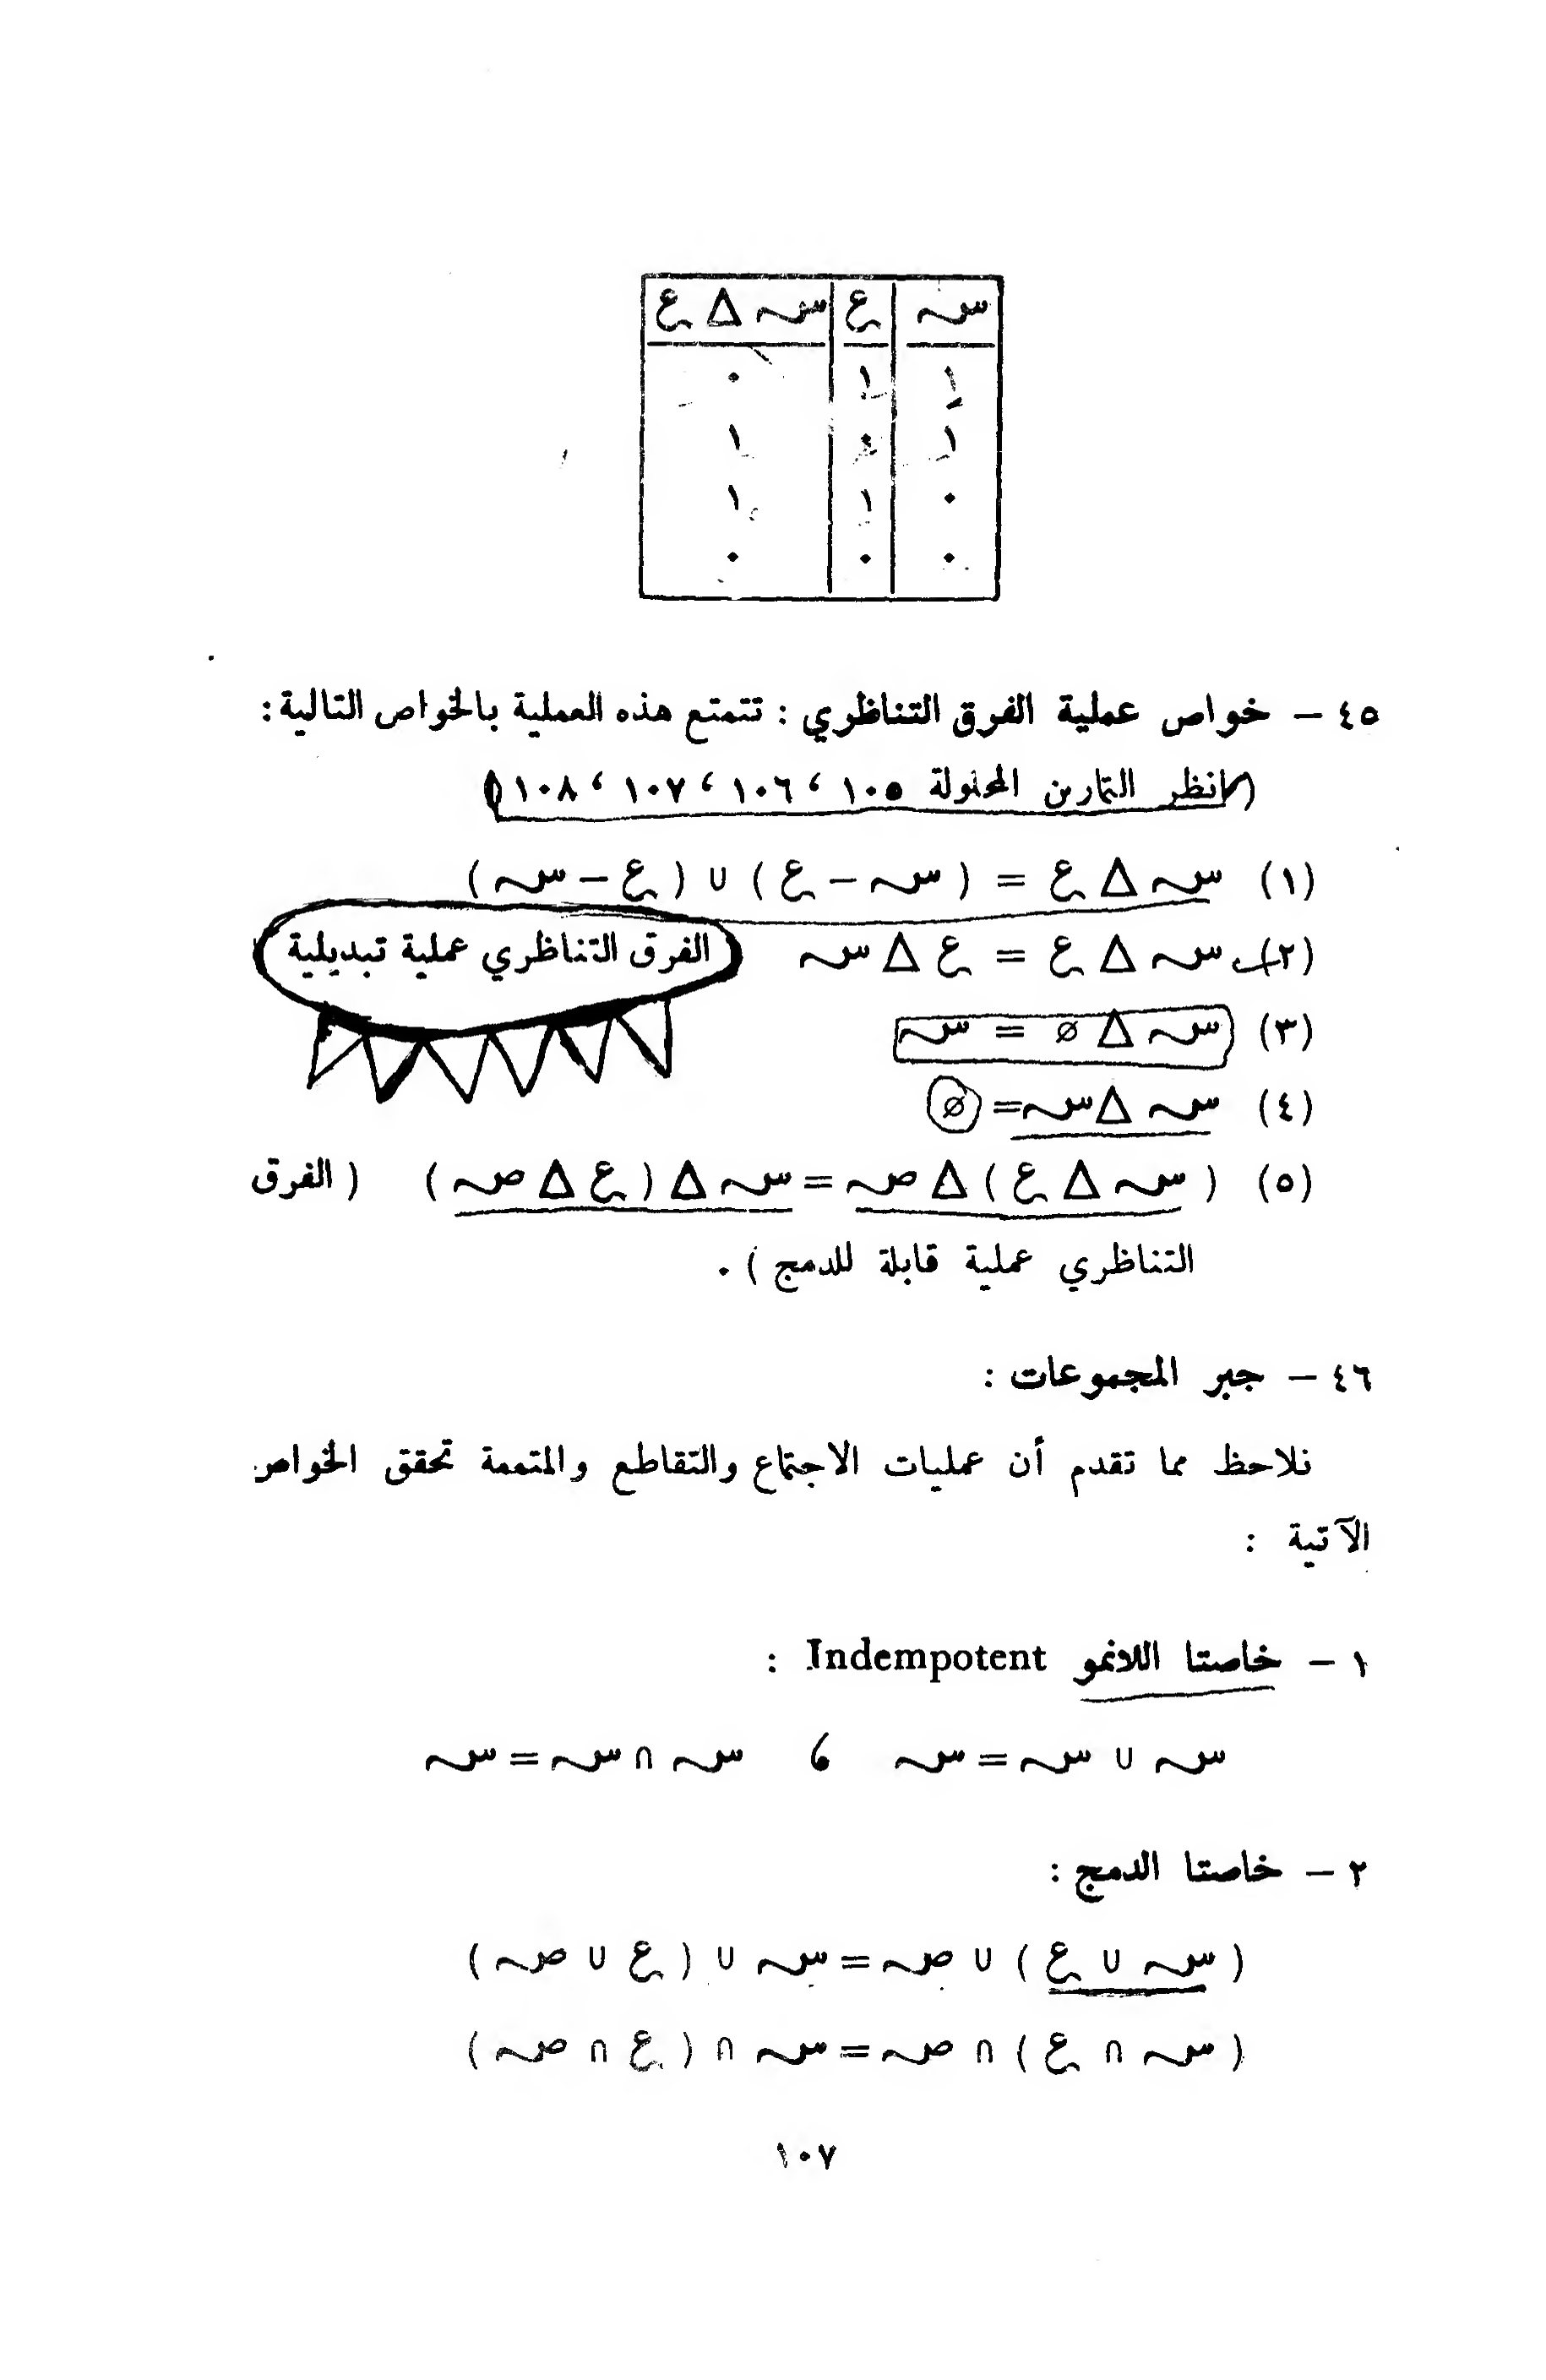 سـ ع سـ Δ ع
١ ١ ٠
١ ٠ ١
٠ ١ ١
٠ ٠ ٠
٤٥ – خواص عملية الفرق التناظري : تتمتع هذه العملية بالخواص التالية :
( انظر التمارين المحلولة ١٠٥ ، ١٠٦ ، ١٠٧ ، ١٠٨ )
(١) سـ Δ ع = ( سـ – ع ) ∪ ( ع – سـ )
(٢) سـ Δ ع = ع Δ سـ الفرق التناظري عملية تبديلية
(٣) سـ Δ ∅ = سـ
(٤) سـ Δ سـ = ∅
(٥) ( سـ Δ ع ) Δ صـ = سـ Δ ( ع Δ صـ ) ( الفرق
التناظري عملية قابلة للدمج ) .
٤٦ – جبر المجموعات :
نلاحظ مما تقدم أن عمليات الاجتماع والتقاطع والمتممة تحقق الخواص
الآتية :
١ – خاصتا اللانمو Indempotent :
سـ ∪ سـ = سـ ، سـ ∩ سـ = سـ
٢ – خاصتا الدمج :
( سـ ∪ ع ) ∪ صـ = سـ ∪ ( ع ∪ صـ )
( سـ ∩ ع ) ∩ صـ = سـ ∩ ( ع ∩ صـ )
١٠٧